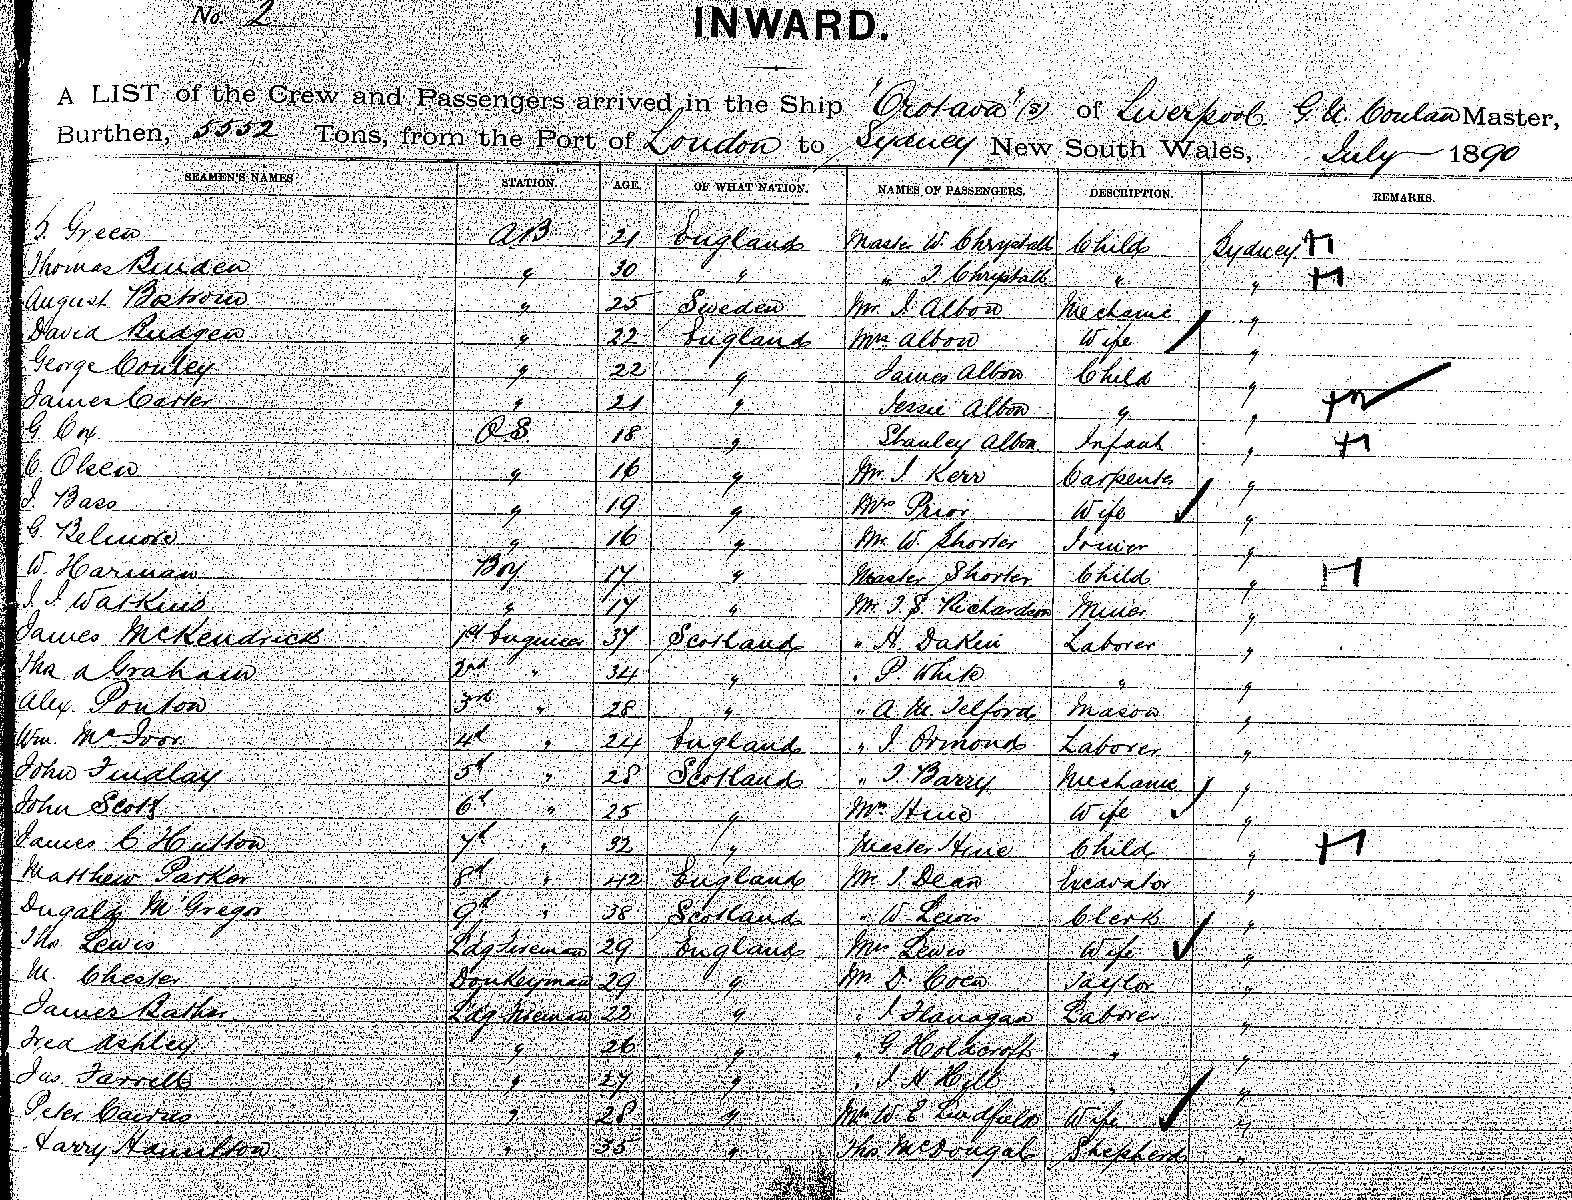 No. 2
INWARD.
A LIST of the Crew and Passengers arrived in the Ship "Orotava" (s) of Liverpool G. A. Conlan Master,
Burthen, 5552 Tons, from the Port of London to Sydney New South Wales, July 1890
SEAMEN'S NAMES STATION. AGE. OF WHAT NATION. NAMES OF PASSENGERS. DESCRIPTION. REMARKS.
Green AB 21 England Master W. Chrystall Child Sydney H
Thomas Burden " 30 " " J. Chrystall " " H
August Bostrom " 25 Sweden Mr. J. Albon Mechanic "
David Rudgen " 22 England Mrs Albon Wife "
George Conley " 22 " James Albon Child "
James Carter " 21 " Jessie Albon " "
G Cox OS 18 " Stanley Albon Infant " H
C. Olsen " 16 " Mr. J. Kerr Carpenter "
J. Bass " 19 " Mrs Prior Wife "
G. Belmore " 16 " Mr. W. Shorter Joiner "
W. Harman Boy 17 " Master Shorter Child " H
J. J. Watkins " 17 " Mr. J. S. Richardson Miner "
James McKendrick 1st Engineer 37 Scotland " H. Dakin Laborer "
Thos A Graham 2nd " 34 " " P. White " "
Alex. Ponton 3rd " 28 " " A. M. Telford Mason "
Wm. McIvor 4th " 24 England " J. Ormond Laborer "
John Findlay 5th " 28 Scotland " J. Barry Mechanic "
John Scott 6th " 25 " Mrs Hine Wife "
James C Hutton 7th " 32 " Master Hine Child " H
Matthew Parker 8th " 42 England Mr. J. Dean Excavator "
Dugald McGregor 9th " 38 Scotland " W. Lewis Clerk "
Thos Lewis Ldg Fireman 29 England Mrs Lewis Wife "
M. Chester Donkeyman 29 " Mr D. Coca Taylor "
James Bather Ldg Fireman 22 " " J. Flanagan Laborer "
Fred Ashley " 26 " " G. Holdcroft " "
Jas. Farrell " 27 " " J. H. Hill " "
Peter Cairns " 28 " Mrs W. E. Lindfield Wife "
Harry Hamilton " 35 " Thos McDougal Shepherd "